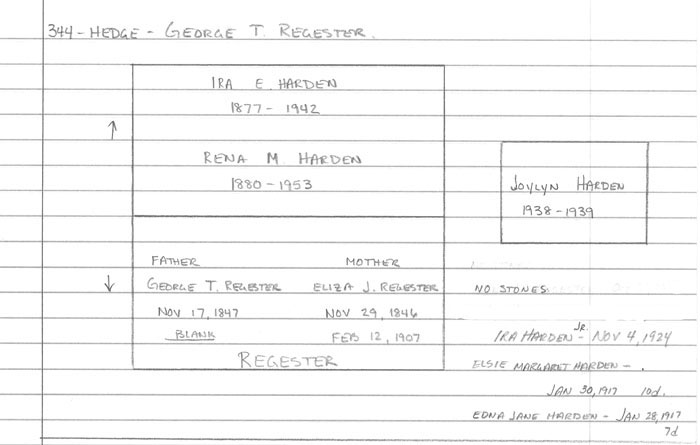 344 - HEDGE - GEORGE T. REGESTER.
IRA E. HARDEN
1877 - 1942
RENA M. HARDEN
1880 - 1953
JOYLYN HARDEN
1938 - 1939
FATHER MOTHER
GEORGE T. REGESTER ELIZA J. REGESTER
NOV 17, 1847 NOV 29, 1846
BLANK FEB 12, 1907
REGESTER
NO STONES.
IRA HARDEN JR. - NOV 4, 1924
ELSIE MARGARET HARDEN - .
JAN 30, 1917 10d.
EDNA JANE HARDEN - JAN 28, 1917
7d